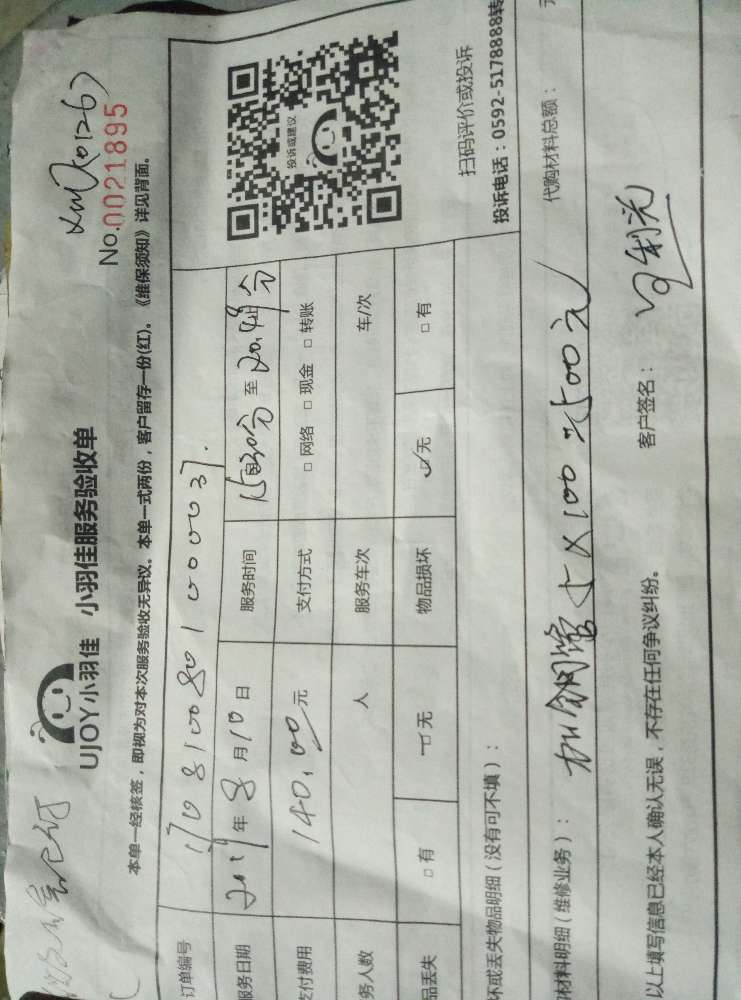 No.0021895
UJOY小羽佳 小羽佳服务验收单
本单一经核签，即视为对本次服务验收无异议。本单一式两份，客户留存一份(红)。《维保须知》详见背面。
订单编号 170810080100037.
务日期 2017年8月10日 服务时间 15时30分 至 20时49分
支付费用 140.00元 支付方式 □ 网络 □ 现金 □ 转账
务人数 人 服务车次 车/次
品丢失 □ 有 无 物品损坏 无 □ 有
投诉或建议
扫码评价或投诉
投诉电话：0592-5178888转
坏或丢失物品明细（没有可不填）：
材料明细（维修业务）： 加钢管 5×100 元500元 代购材料总额： 元
以上填写信息已经本人确认无误，不存在任何争议纠纷。 客户签名：